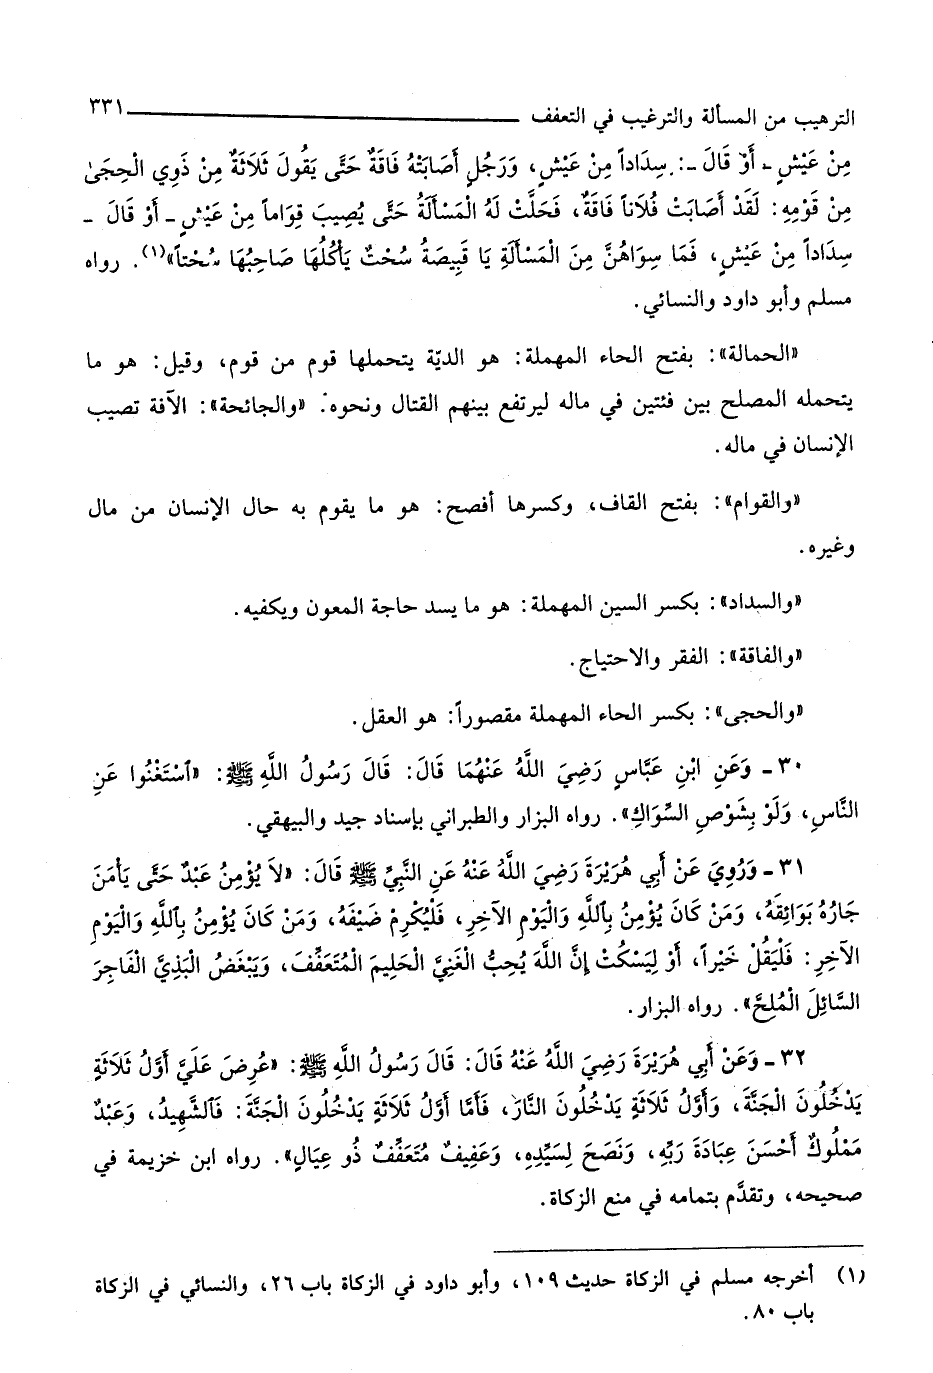 الترهيب من المسألة والترغيب في التعفف ٣٣١
مِنْ عَيْشٍ - أَوْ قَالَ -: سِدَاداً مِنْ عَيْشٍ، وَرَجُلٍ أَصَابَتْهُ فَاقَةٌ حَتَّى يَقُولَ ثَلَاثَةٌ مِنْ ذَوِي الْحِجَىٰ
مِنْ قَوْمِهِ: لَقَدْ أَصَابَتْ فُلَاناً فَاقَةٌ، فَحَلَّتْ لَهُ الْمَسْأَلَةُ حَتَّى يُصِيبَ قِوَاماً مِنْ عَيْشٍ - أَوْ قَالَ -
سِدَاداً مِنْ عَيْشٍ، فَمَا سِوَاهُنَّ مِنَ الْمَسْأَلَةِ يَا قَبِيصَةُ سُحْتٌ يَأْكُلُهَا صَاحِبُهَا سُحْتاً»(١). رواه
مسلم وأبو داود والنسائي.
«الحمالة»: بفتح الحاء المهملة: هو الديّة يتحملها قوم من قوم، وقيل: هو ما
يتحمله المصلح بين فئتين في ماله ليرتفع بينهم القتال ونحوه. «والجائحة»: الآفة تصيب
الإنسان في ماله.
«والقوام»: بفتح القاف، وكسرها أفصح: هو ما يقوم به حال الإنسان من مال
وغيره.
«والسداد»: بكسر السين المهملة: هو ما يسد حاجة المعون ويكفيه.
«والفاقة»: الفقر والاحتياج.
«والحجى»: بكسر الحاء المهملة مقصوراً: هو العقل.
٣٠ - وَعَنِ ابْنِ عَبَّاسٍ رَضِيَ اللَّهُ عَنْهُمَا قَالَ: قَالَ رَسُولُ اللَّهِ ﷺ: «ٱسْتَغْنُوا عَنِ
النَّاسِ، وَلَوْ بِشَوْصِ السِّوَاكِ». رواه البزار والطبراني بإسناد جيد والبيهقي.
٣١ - وَرُوِيَ عَنْ أَبِي هُرَيْرَةَ رَضِيَ اللَّهُ عَنْهُ عَنِ النَّبِيِّ ﷺ قَالَ: «لاَ يُؤْمِنُ عَبْدٌ حَتَّى يَأْمَنَ
جَارُهُ بَوَائِقَهُ، وَمَنْ كَانَ يُؤْمِنُ بِٱللَّهِ وَالْيَوْمِ الآخِرِ، فَلْيُكْرِمْ ضَيْفَهُ، وَمَنْ كَانَ يُؤْمِنُ بِٱللَّهِ وَالْيَوْمِ
الآخِرِ: فَلْيَقُلْ خَيْراً، أَوْ لِيَسْكُتْ إِنَّ اللَّهَ يُحِبُّ الْغَنِيَّ الْحَلِيمَ الْمُتَعَفِّفَ، وَيَبْغَضُ الْبَذِيَّ الْفَاجِرَ
السَّائِلَ الْمُلِحَّ». رواه البزار.
٣٢ - وَعَنْ أَبِي هُرَيْرَةَ رَضِيَ اللَّهُ عَنْهُ قَالَ: قَالَ رَسُولُ اللَّهِ ﷺ: «عُرِضَ عَلَيَّ أَوَّلُ ثَلَاثَةٍ
يَدْخُلُونَ الْجَنَّةَ، وَأَوَّلُ ثَلَاثَةٍ يَدْخُلُونَ النَّارَ، فَأَمَّا أَوَّلُ ثَلَاثَةٍ يَدْخُلُونَ الْجَنَّةَ: فَٱلشَّهِيدُ، وَعَبْدٌ
مَمْلُوكٌ أَحْسَنَ عِبَادَةَ رَبِّهِ، وَنَصَحَ لِسَيِّدِهِ، وَعَفِيفٌ مُتَعَفِّفٌ ذُو عِيَالٍ». رواه ابن خزيمة في
صحيحه، وتقدَّم بتمامه في منع الزكاة.
(١) أخرجه مسلم في الزكاة حديث ١٠٩، وأبو داود في الزكاة باب ٢٦، والنسائي في الزكاة
باب ٨٠.